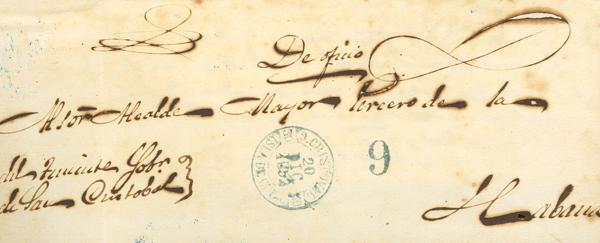 De oficio
Al Sor. Alcalde Mayor tercero de la
del Teniente Gobr.
de San Cristobal
S. CRISTOBAL
20
DIC
1854
9
Habana